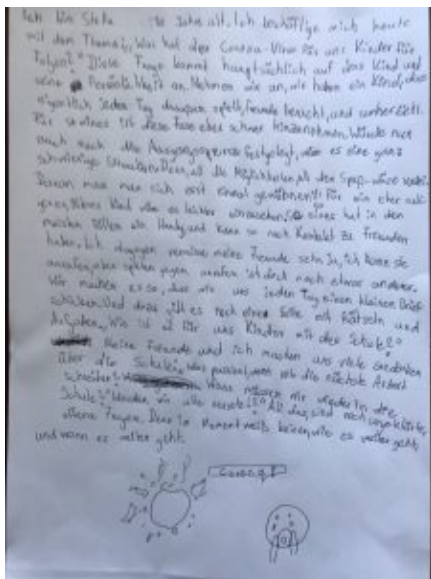 Ich bin Stella 10 Jahre alt. Ich beschäftige mich heute
mit dem Thema: „Was hat der Corona-Virus für uns Kinder für
Folgen?" Diese Frage kommt hauptsächlich auf das Kind und
seine Persönlichkeit an. Nehmen wir an, wir haben ein Kind, das
eigentlich jeden Tag draussen spielt, Freunde besucht, und
Für so eines ist diese Fase eher schwer hinzunehmen. Würde nun
auch noch die Ausgangssperre festgelegt, wäre es eine ganz
schwierige Situation. Denn, all die Möglichkeiten, all der Spaß wäre
Daran muss man sich erst einmal gewöhnen!!! Für ein eher
Kind wäre es leichter So eines hat in den
meisten Fällen ein Handy und kann so noch Kontakt zu Freunden
haben. Ich dagegen vermisse meine Freunde sehr. Ja, ich könnte sie
anrufen, aber spielen gegen anrufen ist doch noch etwas anderes.
Wir machen es so, dass wir uns jeden Tag einen kleinen Brief
schicken. Und dazu gibt es noch eine Seite mit Rätseln und
Aufgaben. Wie ist es für uns Kinder mit der Schule?
Meine Freunde und ich machen uns viele Gedanken
über die Schule. Was passiert, wenn wir die nächste Arbeit
schreiben? Wann müssen wir wieder in die
Schule? Werden wir alle versetzt? All das, sind noch ungeklärte,
offene Fragen. Denn im Moment weiß keiner, wie es weiter geht,
und wann es weiter geht.
Corona!